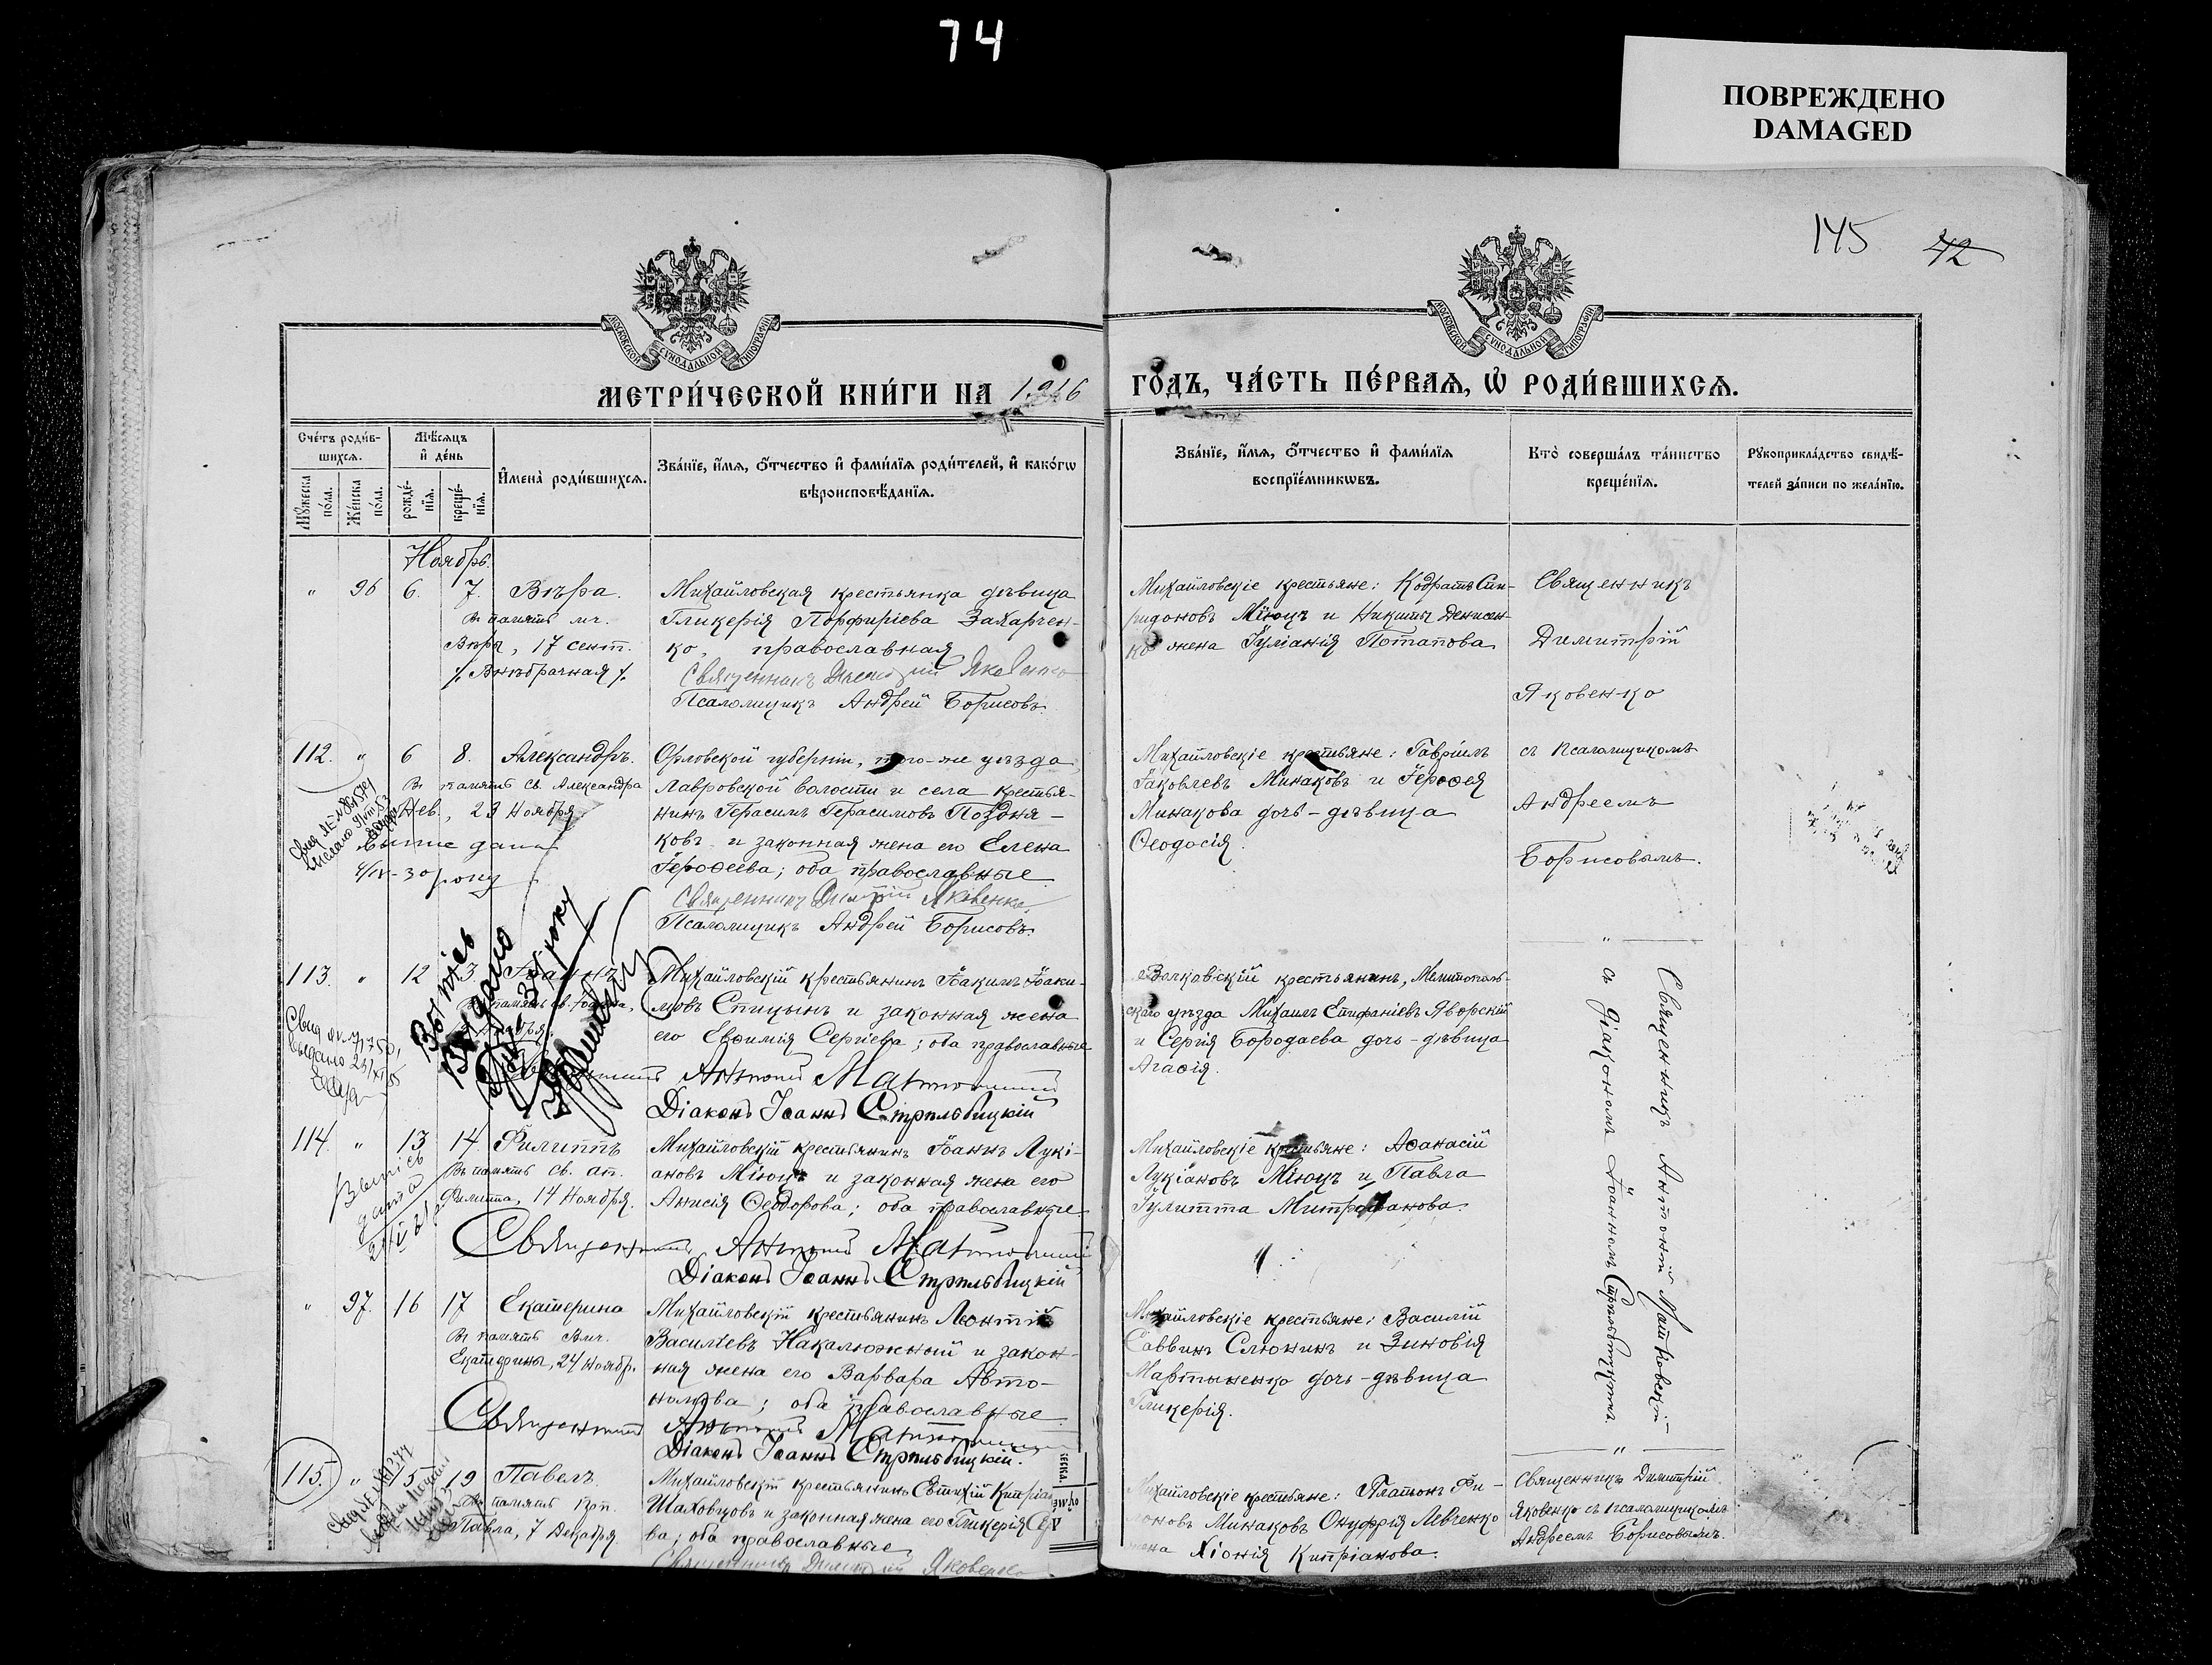 74
ПОВРЕЖДЕНО
DAMAGED
145 42
МОСКОВСКОЙ СѴНОДАЛЬНОЙ ТИПОГРАФІИ
МОСКОВСКОЙ СѴНОДАЛЬНОЙ ТИПОГРАФІИ
МЕТРИ́ЧЕСКОЙ КНИ́ГИ НА 1916
ГО́ДЪ, ЧА́СТЬ ПЕ́РВАѦ, Ѽ РОДИ́ВШИХСѦ.
Сче́тъ роди́в-
шихсѧ.
Мꙋ́жеска по́ла.
Же́нска по́ла.
Мѣ́сѧцъ
и҆ де́нь
рожде́-
нїѧ.
креще́-
нїѧ.
И҆мена̀ роди́вшихсѧ.
Зва́нїе, и҆́мѧ, ѻ҆́тчество и҆ фами́лїѧ роди́телей, и҆ како́гѡ
вѣроисповѣ́данїѧ.
Зва́нїе, и҆́мѧ, ѻ҆́тчество и҆ фами́лїѧ
воспрїе́мникѡвъ.
Кто̀ соверша́лъ та́инство
креще́нїѧ.
Рꙋкоприкла́дство свидѣ́-
телей за́писи по жела́нїю.
Ноябрь.
" 96 6. 7. Вѣра.
Въ память мч.
Вѣры, 17 сент.
/. Внѣбрачная /.
Михайловская крестьянка дѣвица
Гликерія Порфиріева Захарчен-
ко, православная
Священникъ Димитрій Яковенко
Псаломщикъ Андрей Борисовъ.
Михайловскіе крестьяне: Кодратъ Спи-
ридоновъ Міюцъ и Никиты Денисен-
ко жена Іуліанія Потапова
Священникъ
Димитрій
Яковенко
съ псаломщикомъ
Андреемъ
Борисовымъ.
112. " 6 8. Александръ.
Въ память св. Александра
Нев., 23 Ноября.
дана
Орловской губерніи, того-же уѣзда,
Лавровской волости и села крестья-
нинъ Герасимъ Герасимовъ Поздня-
ковъ и законная жена его Елена
Іероѳеева; оба православные.
Священникъ Димитрій Яковенко
Псаломщикъ Андрей Борисовъ.
Михайловскіе крестьяне: Гавріилъ
Іаковлевъ Минаковъ и Іероѳея
Минакова дочь-дѣвица
Ѳеодосія.
113. " 12 13 Іоаннъ
Витяг
видано
Михайловскій крестьянинъ Іакимъ Іаки-
мовъ Спицынъ и законная жена
его Евѳимія Сергіева; оба православные
Священникъ Антоній Матковскій
Діаконъ Іоаннъ Стрпльбицкій
крестьянинъ, Мелитополь-
скаго уѣзда Михаилъ Епифаніевъ Яворскій
и Сергія Бородаева дочь-дѣвица
Агаѳія.
Священникъ Антоній Матковскій
съ діакономъ Іоанномъ Стрпльбицкимъ
114. " 13 14. Филиппъ
Въ память св. ап.
Филиппа, 14 Ноября.
Михайловскій крестьянинъ Іоаннъ Лукі-
ановъ Міюцъ и законная жена его
Анисія Ѳеодорова; оба православные
Священникъ Антоній Матковскій
Діаконъ Іоаннъ Стрпльбицкій
Михайловскіе крестьяне: Аѳанасій
Лукіановъ Міюцъ и Павла
Іулитта Митрофанова.
" 97. 16 17 Екатерина
Въ память Вмч.
Екатерины, 24 Ноябр.
Михайловскій крестьянинъ Леонтій
Василіевъ Накалюжный и закон-
ная жена его Варвара Авто-
номова; оба православные.
Священникъ Антоній Матковскій
Діаконъ Іоаннъ Стрпльбицкій.
Михайловскіе крестьяне: Василій
Саввинъ Слюнинъ и Зиновія
Мартыненко дочь-дѣвица
Гликерія.
115. " 15 19 Павелъ
Въ память прп.
Павла, 7 Декабря.
Михайловскій крестьянинъ Евтихій Кипріа
Шаховцовъ и законная жена его Гликерія
ва; оба православные.
Священникъ Димитрій Яковенко
Михайловскіе крестьяне: Платонъ Фи-
оновъ Минаковъ Онуфрія Левченко
жена Хіонія Кипріанова.
Священникъ Димитрій
Яковенко съ псаломщикомъ
Андреемъ Борисовымъ.